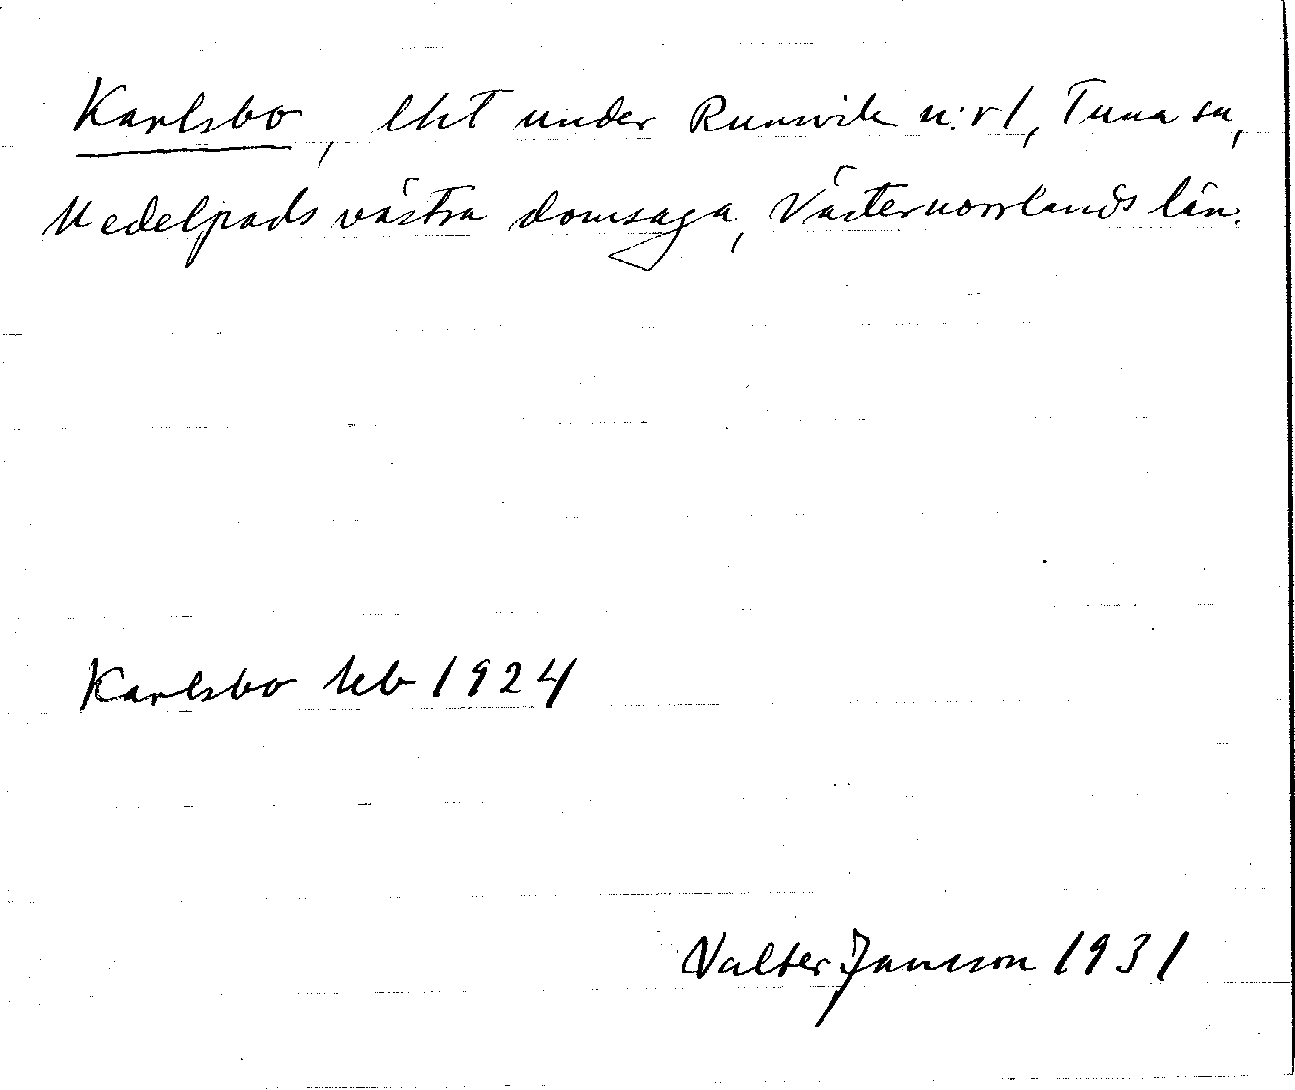 Karlsbo, lht under Runsvik n:r 1, Tuna sn,
Medelpads västra domsaga, Västernorrlands län.
Karlsbo kb 1924
Valter Jansson 1931